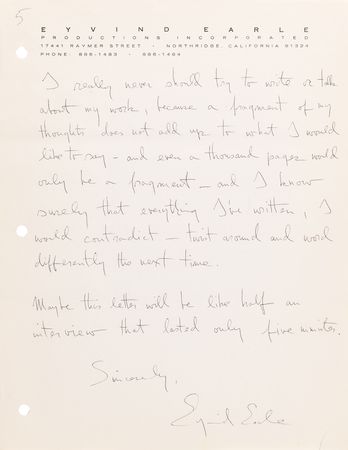 5
EYVIND EARLE
PRODUCTIONS INCORPORATED
17441 RAYMER STREET · NORTHRIDGE, CALIFORNIA 91324
PHONE: 886-1483 · 886-1484
I really never should try to write or talk
about my work, because a fragment of my
thoughts does not add up to what I would
like to say - and even a thousand pages would
only be a fragment - and I know
surely that everything I've written, I
would contradict - twist around and word
differently the next time.
Maybe this letter will be like half an
interview that lasted only five minutes.
Sincerely,
Eyvind Earle